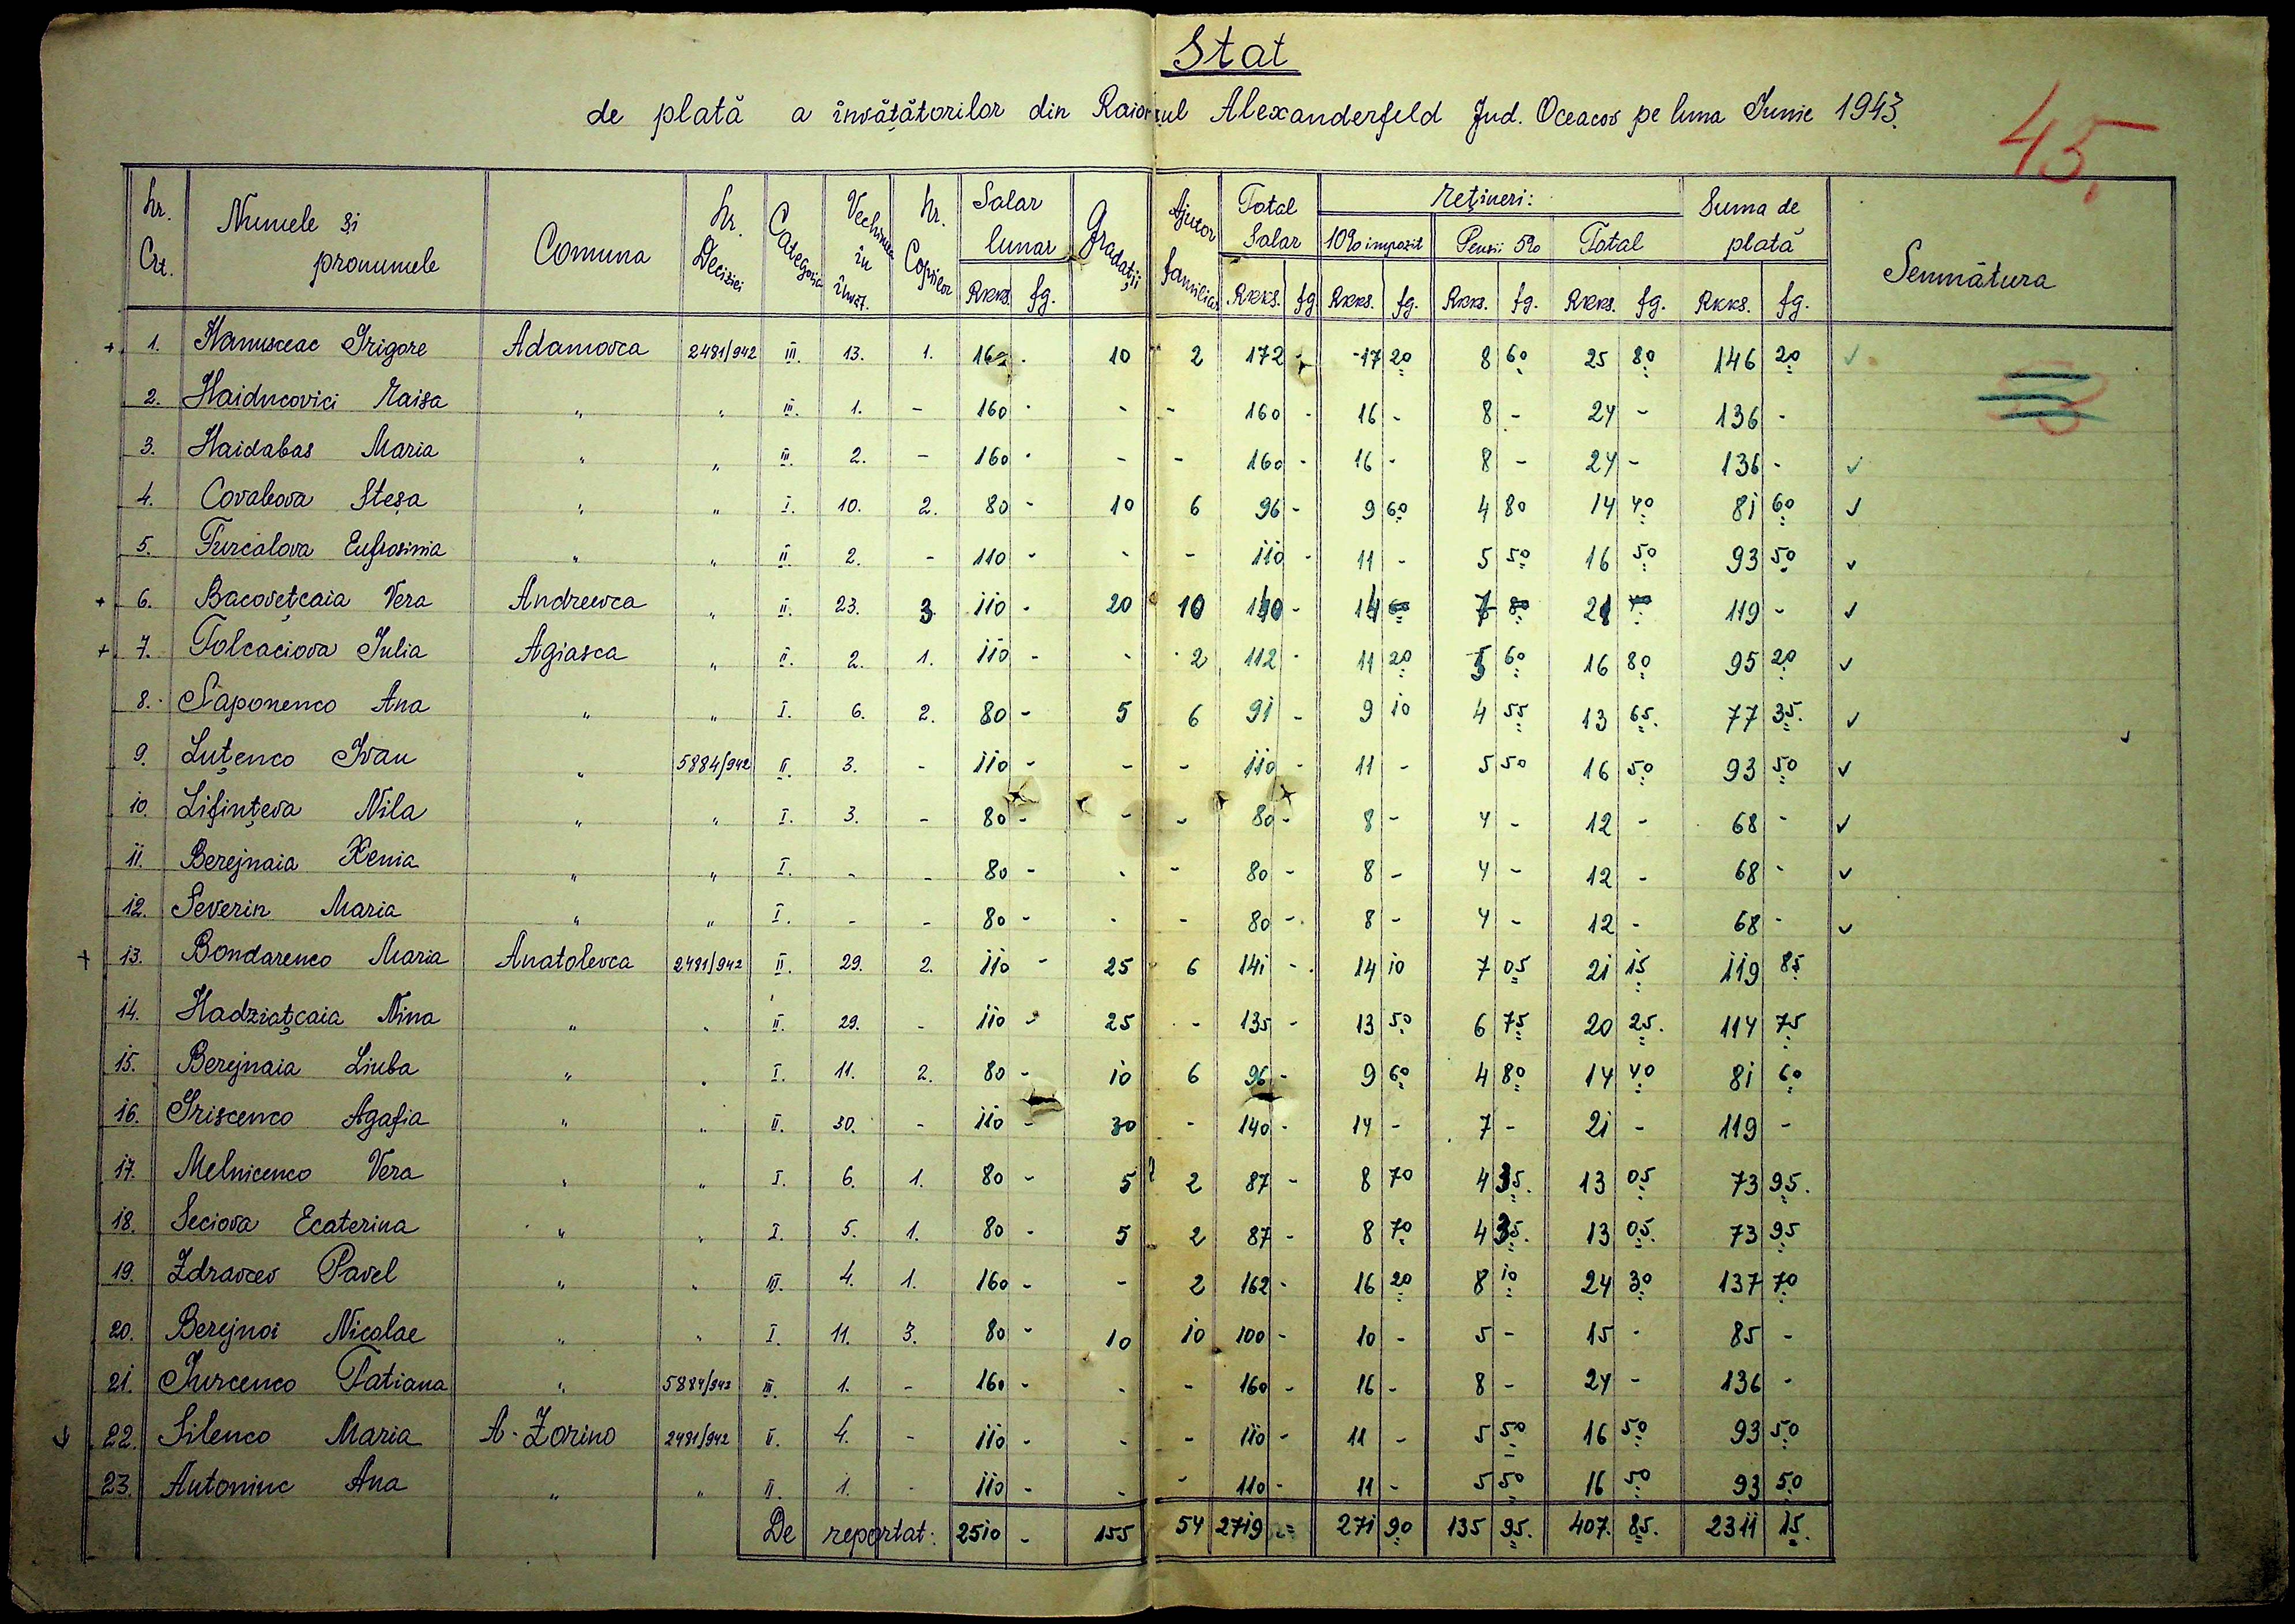 Stat
de plată a învățătorilor din Raionul Alexanderfeld Jud. Oceacov pe luna Iunie 1943.
45.
Nr. Crt. Numele și pronumele Comuna Nr. Deciziei Categoria Vechimea în învăț. Nr. Copiilor Salar lunar Gradații Ajutor familiar Total Salar Rețineri: Suma de plată Semnătura
10% impozit Pensii 5% Total
RKKS. fg. RKKS. fg. RKKS. fg. RKKS. fg. RKKS. fg. RKKS. fg.
+ 1. Hanusceac Grigore Adamovca 2481/942 III. 13. 1. 160 - 10 2 172 - 17 20 8 60 25 80 146 20 ✓
2. Haiducovici Raisa " " III. 1. - 160 - - - 160 - 16 - 8 - 24 - 136 -
3. Haidabas Maria " " III. 2. - 160 - - - 160 - 16 - 8 - 24 - 136 - ✓
4. Covaleova Steșa " " I. 10. 2. 80 - 10 6 96 - 9 60 4 80 14 40 81 60 ✓
5. Turcalova Eufrosinia " " II. 2. - 110 - - - 110 - 11 - 5 50 16 50 93 50 ✓
+ 6. Bacovețcaia Vera Andreevca " II. 23. 3 110 - 20 10 140 - 14 7 21 119 - ✓
+ 7. Tolcaciova Iulia Agiasca " II. 2. 1. 110 - - 2 112 - 11 20 5 60 16 80 95 20 ✓
8. Saponenco Ana " " I. 6. 2. 80 - 5 6 91 - 9 10 4 55 13 65. 77 35. ✓
9. Luțenco Ivan " 5884/942 II. 3. - 110 - - - 110 - 11 - 5 50 16 50 93 50 ✓
10. Lifințeva Nila " " I. 3. - 80 - - - 80 - 8 - 4 - 12 - 68 - ✓
11. Berejnaia Xenia " " I. - - 80 - - - 80 - 8 - 4 - 12 - 68 - ✓
12. Severin Maria " " I. - - 80 - - - 80 - 8 - 4 - 12 - 68 - ✓
+ 13. Bondarenco Maria Anatolevca 2481/942 II. 29. 2. 110 - 25 6 141 - 14 10 7 05 21 15 119 85
14. Hadziațcaia Nina " " II. 29. - 110 - 25 - 135 - 13 50 6 75 20 25. 114 75
15. Berejnaia Liuba " " I. 11. 2. 80 - 10 6 96 - 9 60 4 80 14 40 81 60
16. Griscenco Agafia " " II. 30. - 110 - 30 - 140 - 14 - 7 - 21 - 119 -
17. Melnicenco Vera " " I. 6. 1. 80 - 5 2 87 - 8 70 4 35. 13 05 73 95.
18. Seciova Ecaterina " " I. 5. 1. 80 - 5 2 87 - 8 70 4 35. 13 05. 73 95
19. Zdravcev Pavel " " III. 4. 1. 160 - - 2 162 - 16 20 8 10 24 30 137 70
20. Berejnoi Nicolae " " I. 11. 3. 80 - 10 10 100 - 10 - 5 - 15 - 85 -
21. Iurcenco Tatiana " 5884/942 III. 1. - 160 - - - 160 - 16 - 8 - 24 - 136 -
22. Silenco Maria A. Zorino 2481/942 II. 4. - 110 - - - 110 - 11 - 5 50 16 50 93 50
23. Antoniuc Ana " " II. 1. - 110 - - - 110 - 11 - 5 50 16 50 93 50
De reportat: 2510 - 155 54 2719 - 271 90 135 95. 407. 85. 2311 15.